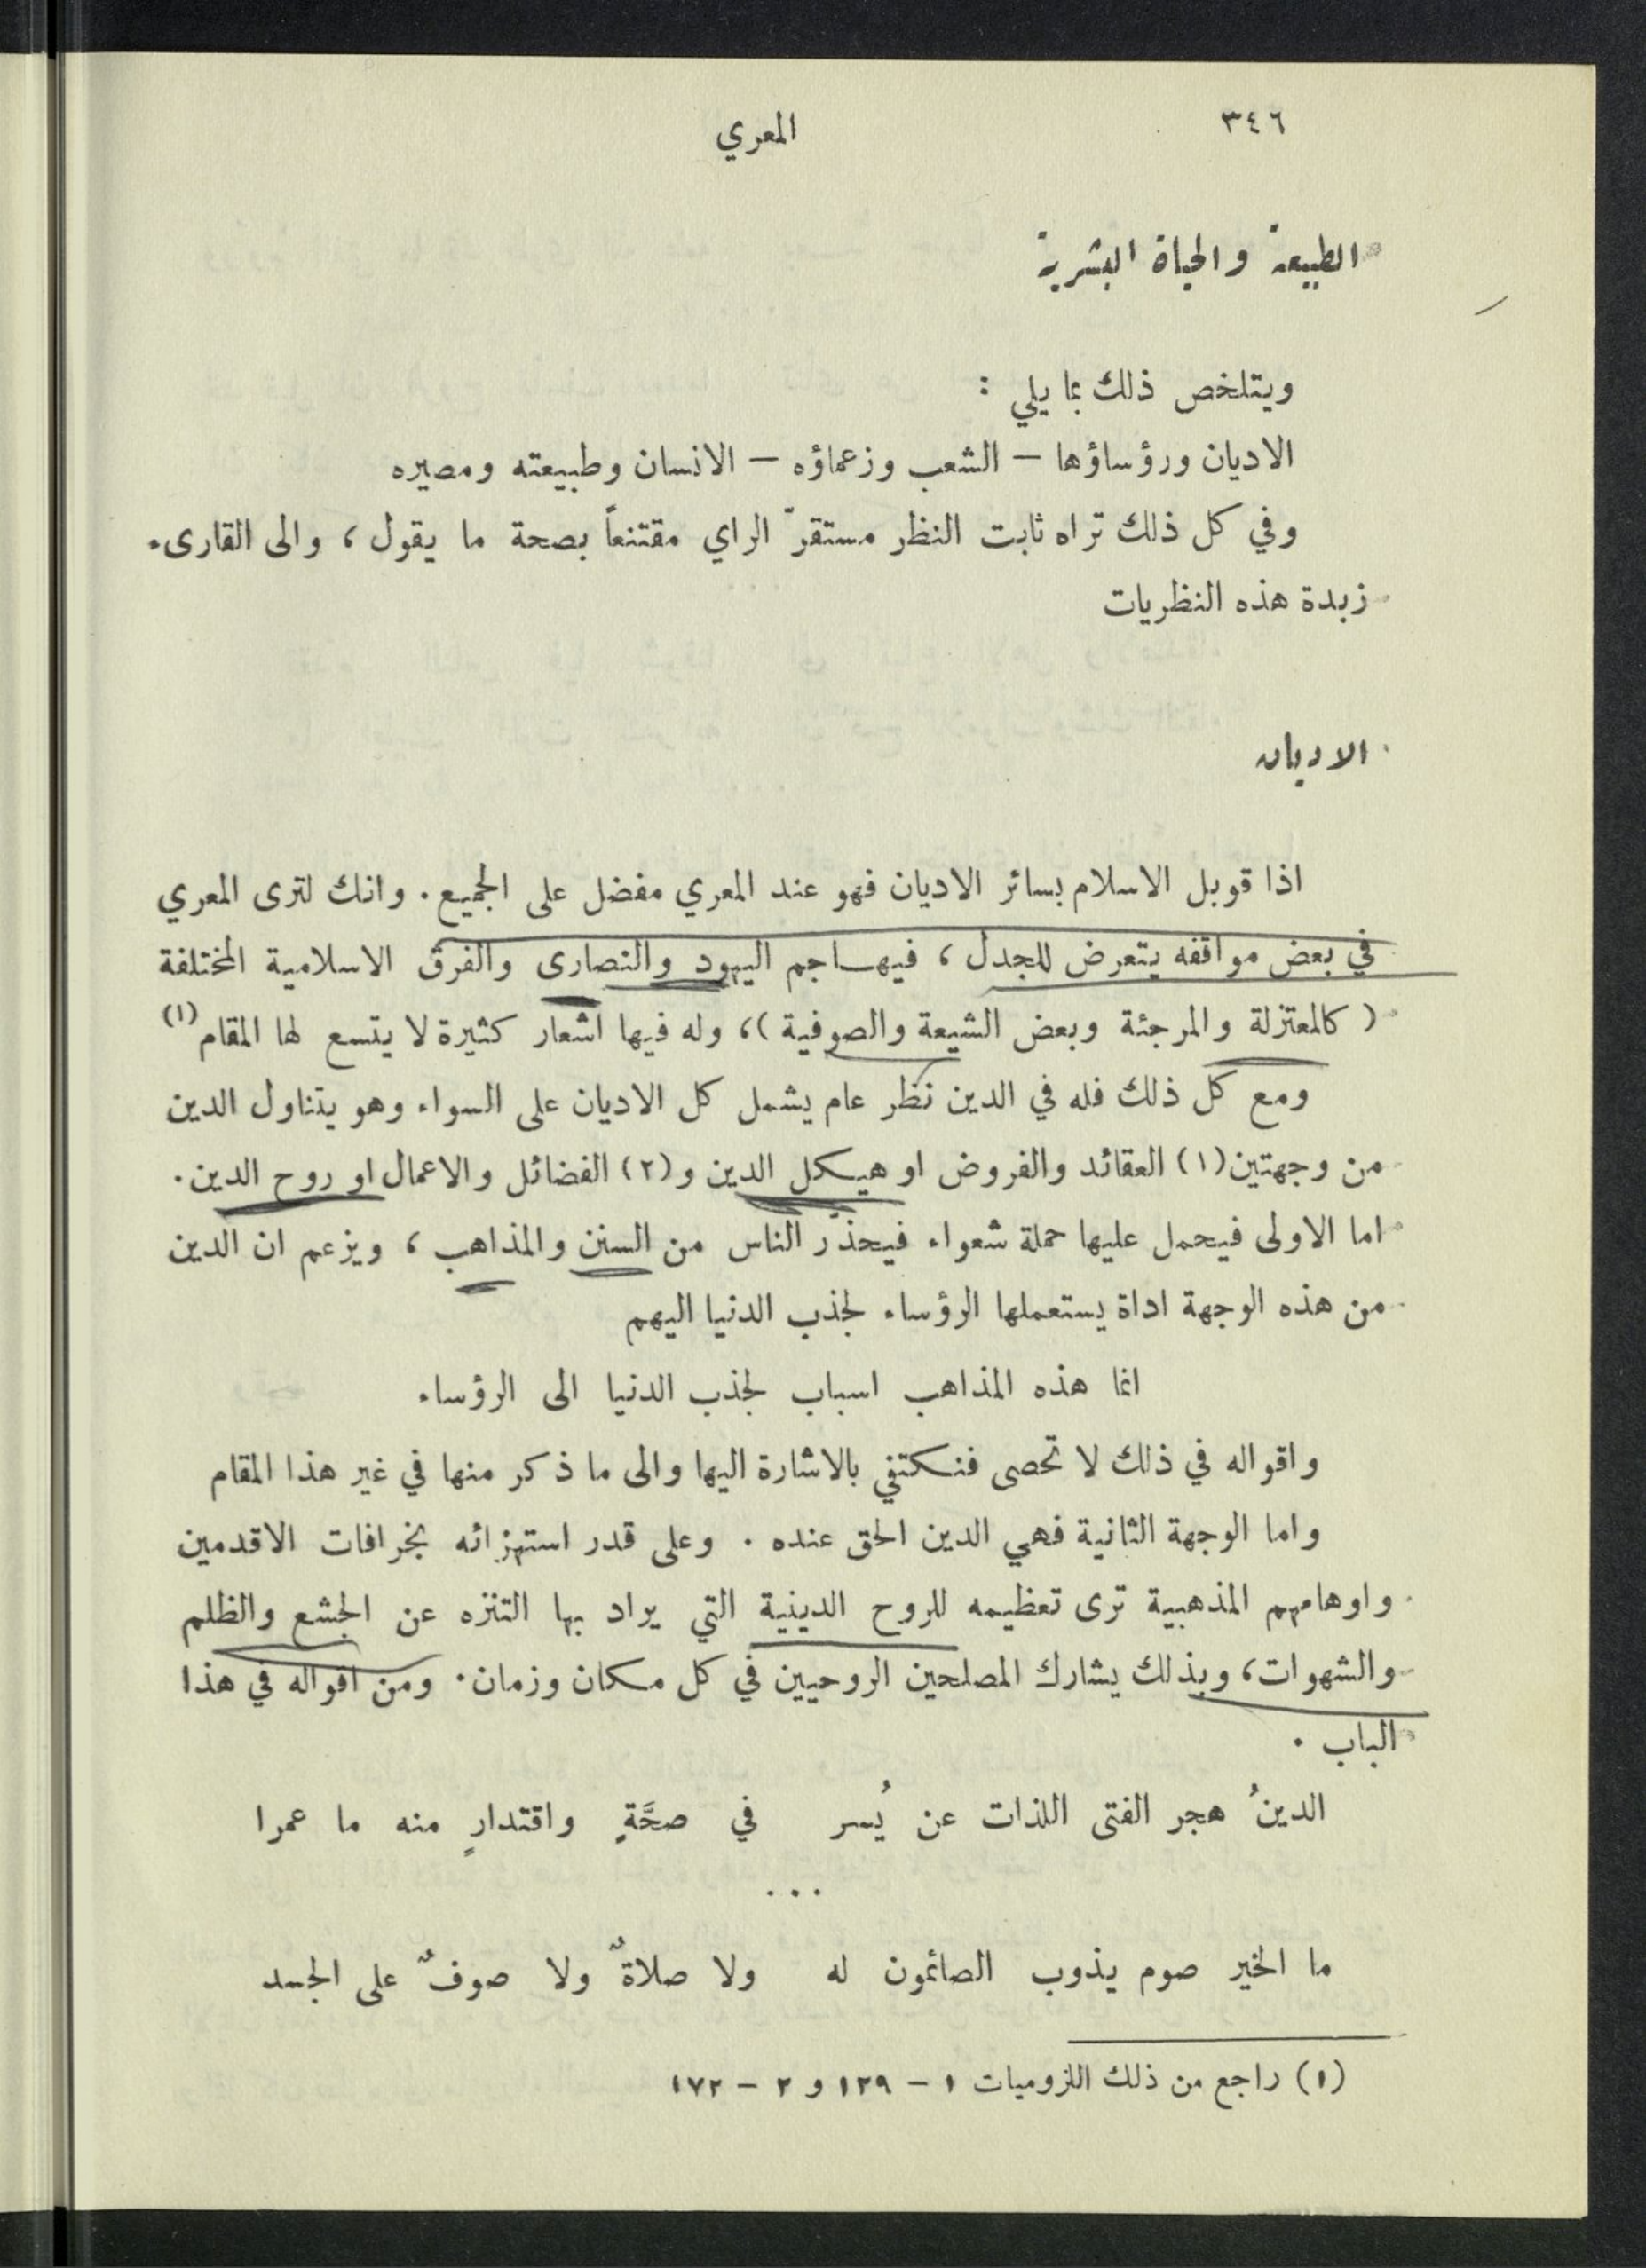 ٣٤٦
المعري
الطبيعة والحياة البشرية
ويتلخص ذلك بما يلي :
الاديان ورؤساؤها – الشعب وزعماؤه – الانسان وطبيعته ومصيره
وفي كل ذلك تراه ثابت النظر مستقرّ الراي مقتنعاً بصحة ما يقول ، والى القارىء
زبدة هذه النظريات
الاديان
اذا قوبل الاسلام بسائر الاديان فهو عند المعري مفضل على الجميع . وانك لترى المعري
في بعض مواقفه يتعرض للجدل ، فيهاجم اليهود والنصارى والفرق الاسلامية المختلفة
( كالمعتزلة والمرجئة وبعض الشيعة والصوفية )، وله فيها اشعار كثيرة لا يتسع لها المقام (١)
ومع كل ذلك فله في الدين نظر عام يشمل كل الاديان على السواء وهو يتناول الدين
من وجهتين (١) العقائد والفروض او هيكل الدين و (٢) الفضائل والاعمال او روح الدين .
اما الاولى فيحمل عليها حملة شعواء فيحذّر الناس من السنن والمذاهب ، ويزعم ان الدين
من هذه الوجهة اداة يستعملها الرؤساء لجذب الدنيا اليهم
انما هذه المذاهب اسباب لجذب الدنيا الى الرؤساء
واقواله في ذلك لا تحصى فنكتفي بالاشارة اليها والى ما ذكر منها في غير هذا المقام
واما الوجهة الثانية فهي الدين الحق عنده . وعلى قدر استهزائه بخرافات الاقدمين
واوهامهم المذهبية ترى تعظيمه للروح الدينية التي يراد بها التنزه عن الجشع والظلم
والشهوات ، وبذلك يشارك المصلحين الروحيين في كل مكان وزمان . ومن اقواله في هذا
الباب .
الدينُ هجر الفتى اللذات عن يُسر في صحَّةٍ واقتدارٍ منه ما عمرا
...
ما الخير صوم يذوب الصائمون له ولا صلاةٌ ولا صوفٌ على الجسد
(١) راجع من ذلك اللزوميات ١ – ١٢٩ و ٢ – ١٧٢